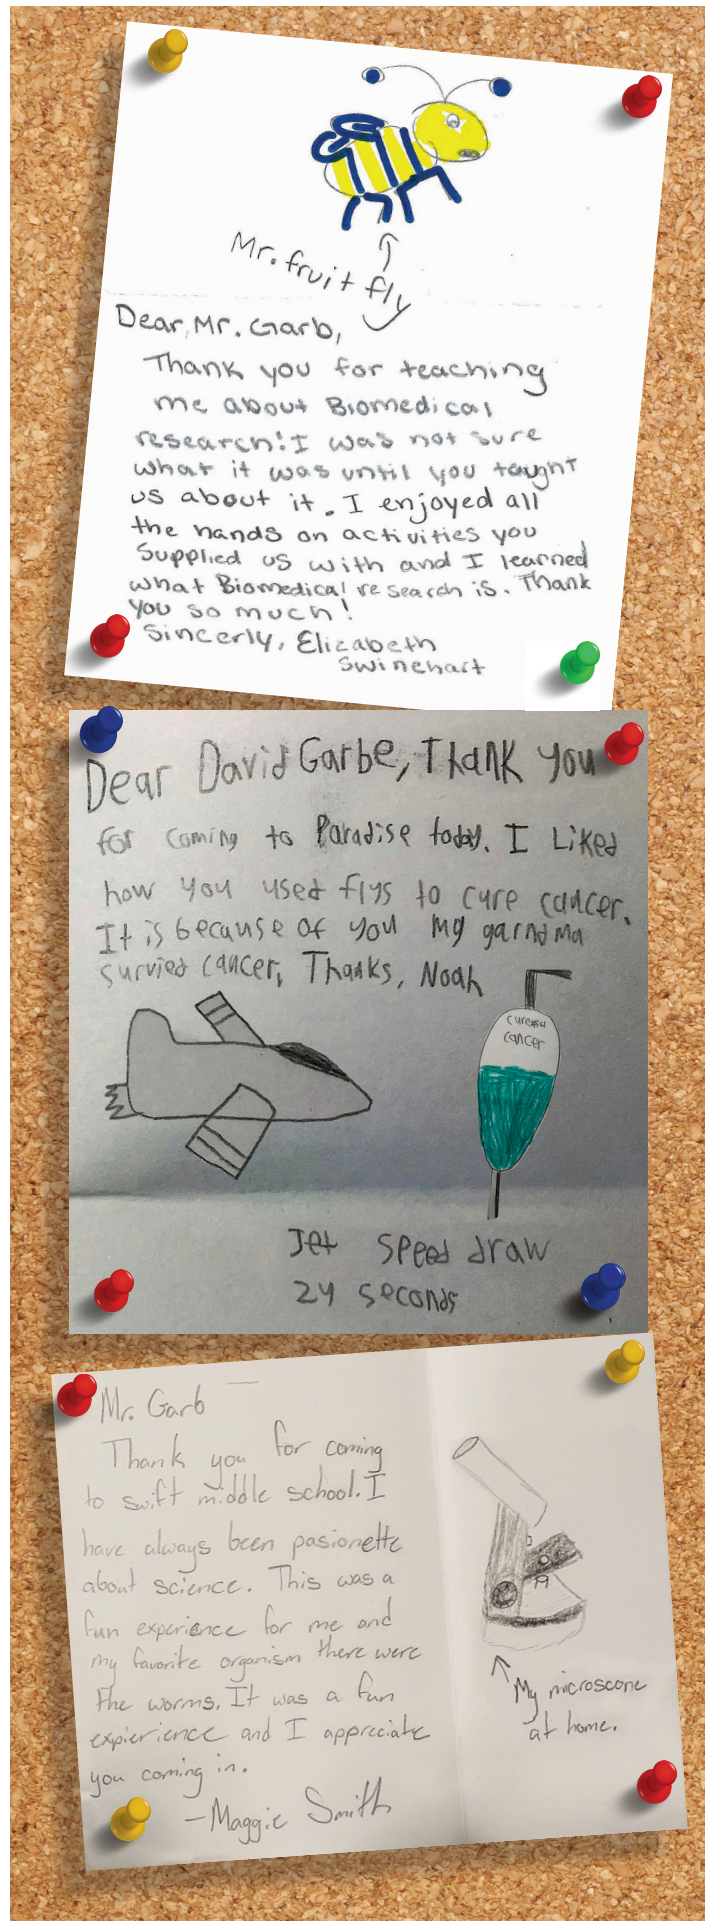 Mr. fruit fly
Dear, Mr. Garb,
Thank you for teaching
me about Biomedical
research! I was not sure
what it was until you taught
us about it. I enjoyed all
the hands on activities you
Supplied us with and I learned
what Biomedical research is. Thank
you so much!
Sincerly, Elizabeth
Swinehart
Dear David Garbe, Thank you
for coming to Paradise today. I Liked
how you used flys to cure cancer.
It is because of you my garndma
survied cancer, Thanks, Noah
cancer
Jet speed draw
24 seconds
Mr. Garb
Thank you for coming
to swift middle school. I
have always been pasionette
about science. This was a
fun experience for me and
my favorite organism there were
the worms. It was a fun
expierience and I appreciate
you coming in.
-Maggie Smith
My microscope
at home.